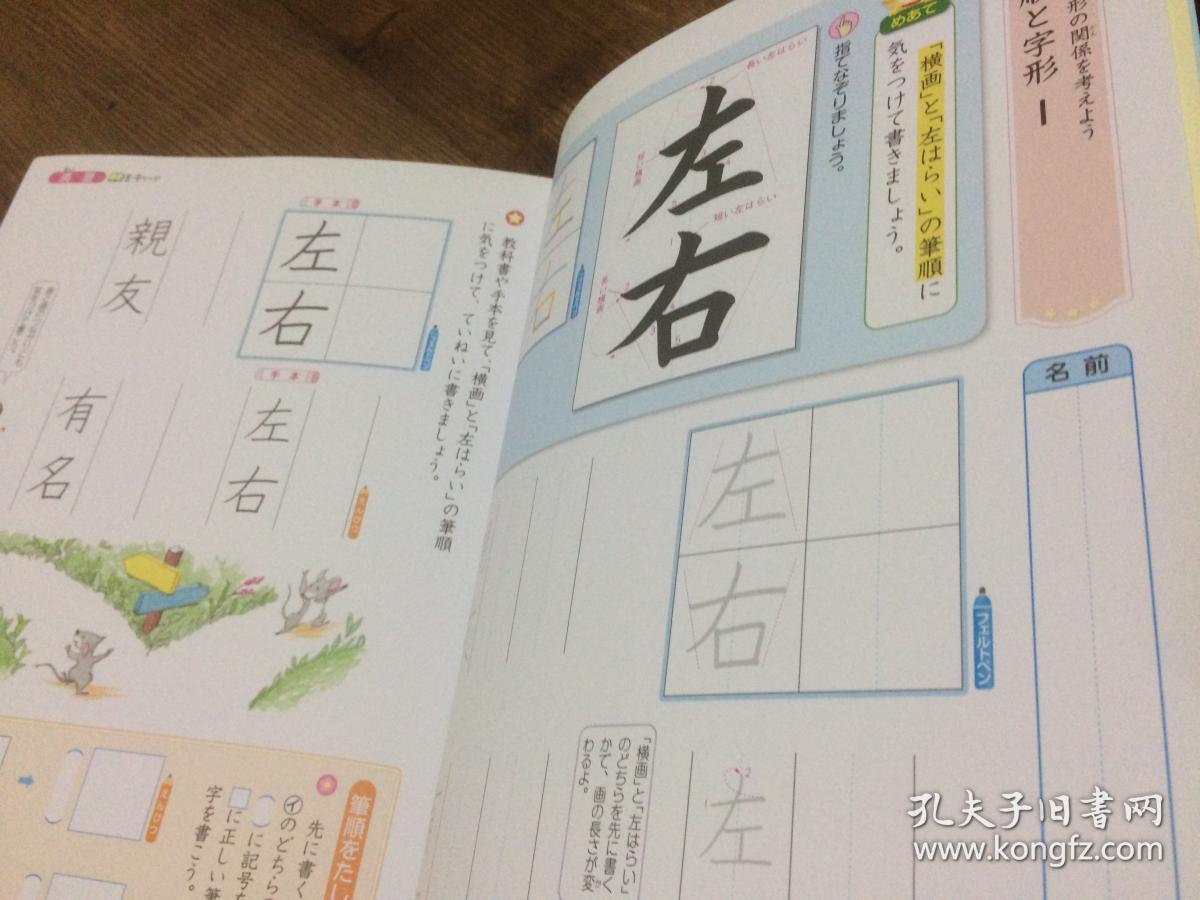 形の関係を考えよう
と字形 1
めあて
「横画」と「左はらい」の筆順に
気をつけて書きましょう。
指でなぞりましょう。
長い左はらい
短い横画
左
短い左はらい
長い横画
右
名前
左
右
フェルトペン
左
「横画」と「左はらい」
のどちらを先に書く
かで、画の長さが変
わるよ。
教科書や手本を見て、「横画」と「左はらい」の筆順
に気をつけて、ていねいに書きましょう。
手本
左
右
フェルトペン
親
友
手本
左
右
えんぴつ
有
名
筆順をた
先に書く
㋑のどちらの
に記号を
に正しい筆
字を書こう。
えんぴつ
孔夫子旧书网
www.kongfz.com